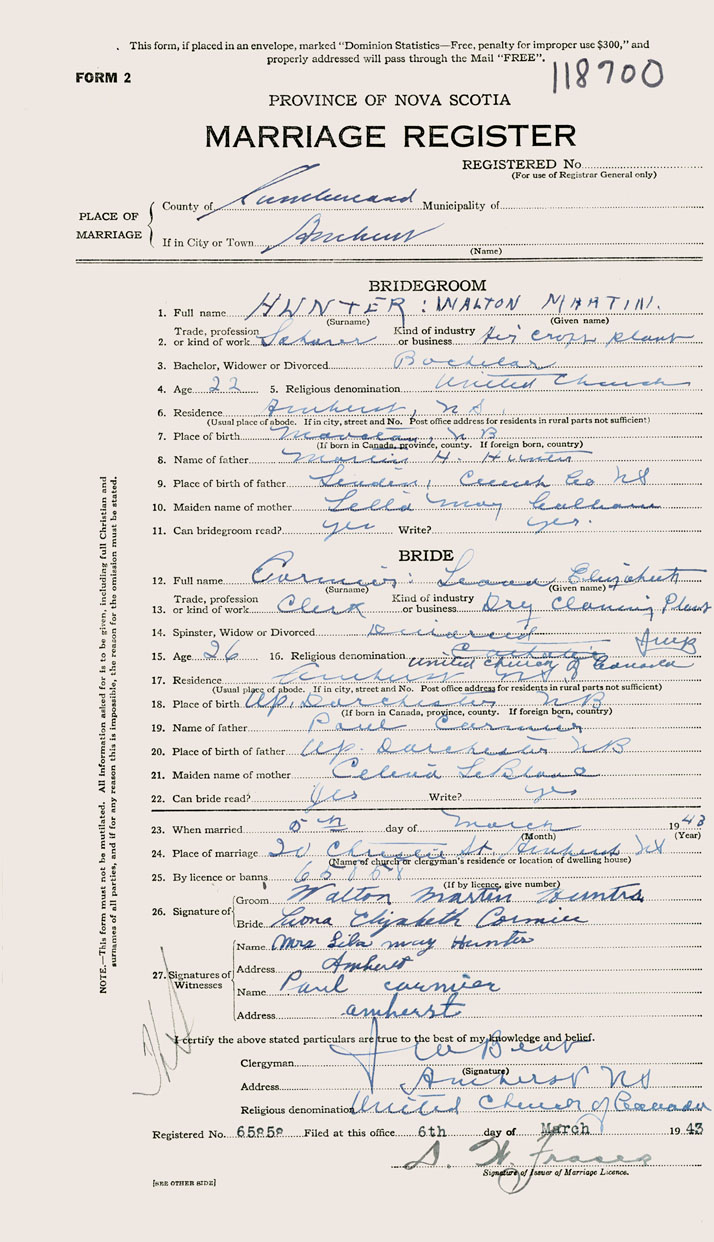 . This form, if placed in an envelope, marked "Dominion Statistics—Free, penalty for improper use $300," and
properly addressed will pass through the Mail "FREE".
118700
FORM 2
PROVINCE OF NOVA SCOTIA
MARRIAGE REGISTER
REGISTERED No.
(For use of Registrar General only)
PLACE OF MARRIAGE
County of Cumberland Municipality of
If in City or Town Amherst
(Name)
BRIDEGROOM
1. Full name HUNTER : WALTON MARTIN.
(Surname) (Given name)
2. Trade, profession or kind of work Laborer Kind of industry or business Air craft plant
3. Bachelor, Widower or Divorced Bachelor
4. Age 22 5. Religious denomination United Church
6. Residence Amherst, NS
(Usual place of abode. If in city, street and No. Post office address for residents in rural parts not sufficient)
7. Place of birth NB
(If born in Canada, province, county. If foreign born, country)
8. Name of father Martin H. Hunter
9. Place of birth of father Linden, Co NS
10. Maiden name of mother may
11. Can bridegroom read? yes Write? yes.
BRIDE
12. Full name Cormier: Leona Elizabeth
(Surname) (Given name)
13. Trade, profession or kind of work Clerk Kind of industry or business Dry cleaning Plant
14. Spinster, Widow or Divorced Divorced
15. Age 26 16. Religious denomination united church of Canada
17. Residence Amherst NS
(Usual place of abode. If in city, street and No. Post office address for residents in rural parts not sufficient)
18. Place of birth Up. Dorchester NB
(If born in Canada, province, county. If foreign born, country)
19. Name of father Paul Cormier
20. Place of birth of father Up. Dorchester NB
21. Maiden name of mother LeBlanc
22. Can bride read? Yes Write? yes
23. When married 5th day of March 1943
(Month) (Year)
24. Place of marriage 20 Christie St. Amherst NS
(Name of church or clergyman's residence or location of dwelling house)
25. By licence or banns 65858
(If by licence, give number)
26. Signature of
Groom Walton Martin Hunter
Bride Leona Elizabeth Cormier
27. Signatures of Witnesses
Name Mrs Lila may Hunter
Address Amherst
Name Paul cormier
Address amherst
I certify the above stated particulars are true to the best of my knowledge and belief.
Clergyman
(Signature)
Address Amherst NS
Religious denomination United Church of Canada
Registered No. 65858 Filed at this office 6th day of March 1943
S. W. Fraser
Signature of Issuer of Marriage Licence.
[SEE OTHER SIDE]
NOTE.—This form must not be mutilated. All Information asked for is to be given, including full Christian and
surnames of all parties, and if for any reason this is impossible, the reason for the omission must be stated.